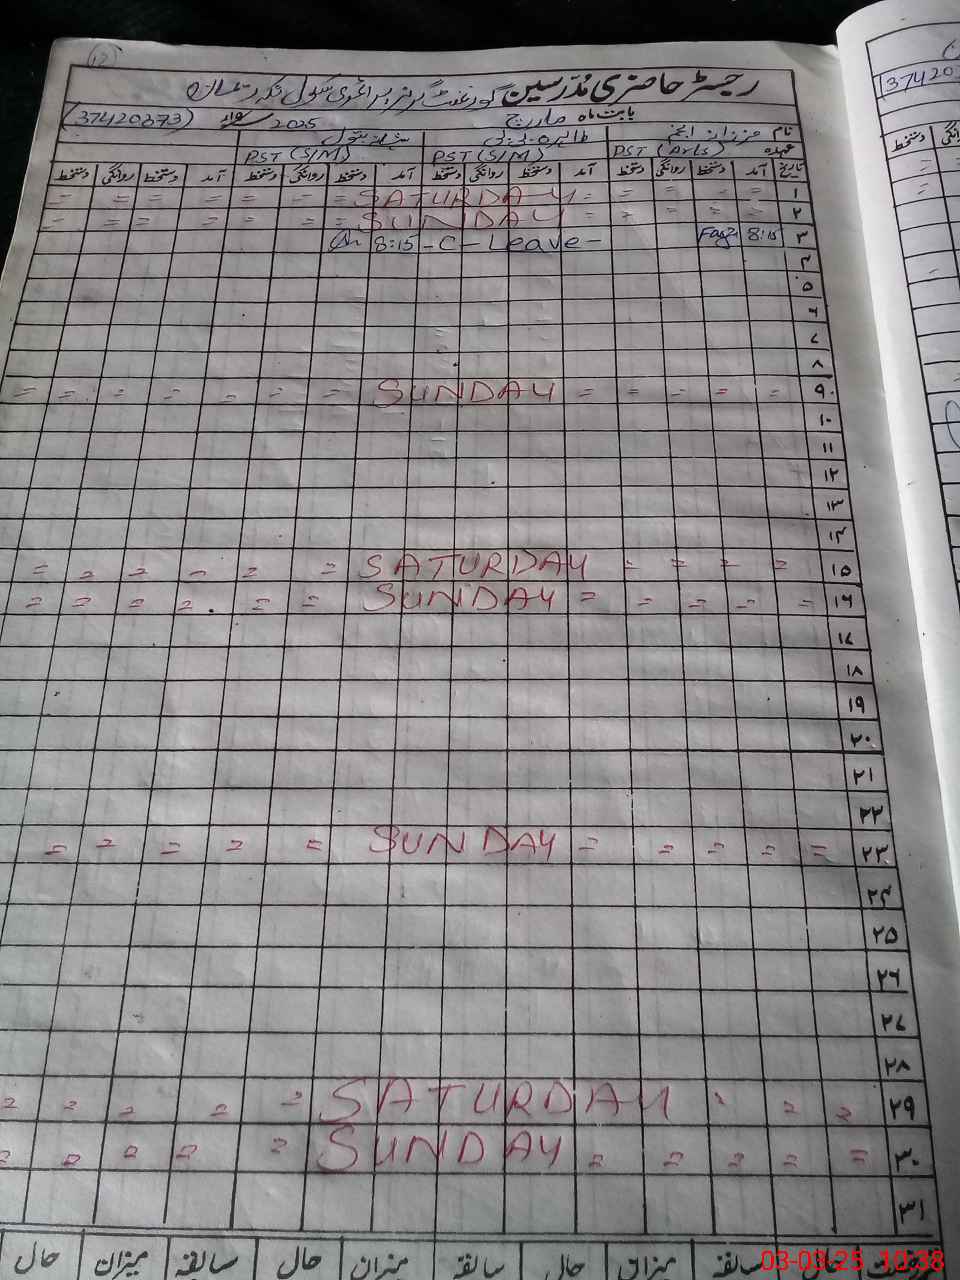 ۱۲
رجسٹر حاضری مُدرسین گورنمنٹ گرلز پرائمری سکول
(37420373) 2025 بابت ماہ مارچ
نام
عہدہ PST (Arts) PST (S/M) PST (S/M)
تاریخ آمد دستخط روانگی دستخط آمد دستخط روانگی دستخط آمد دستخط روانگی دستخط آمد دستخط روانگی دستخط
۱ = = = = SATURDAY = = = = = =
۲ = = = = SUNDAY = = = = = =
۳ 8:15 - C - Leave - 8:15
۴
۵
۶
۷
۸
۹ = = = = = SUNDAY = = = = = = =
۱۰
۱۱
۱۲
۱۳
۱۴
۱۵ = = = = SATURDAY = = = = = =
۱۶ = = = = = SUNDAY = = = = = =
۱۷
۱۸
۱۹
۲۰
۲۱
۲۲
۲۳ = = = = = SUNDAY = = = = =
۲۴
۲۵
۲۶
۲۷
۲۸
۲۹ = = = SATURDAY = = = = =
۳۰ = = = = = SUNDAY = = = = =
۳۱
سابقہ میزان حال سابقہ میزان حال سابقہ میزان حال
03-03-25 10:38